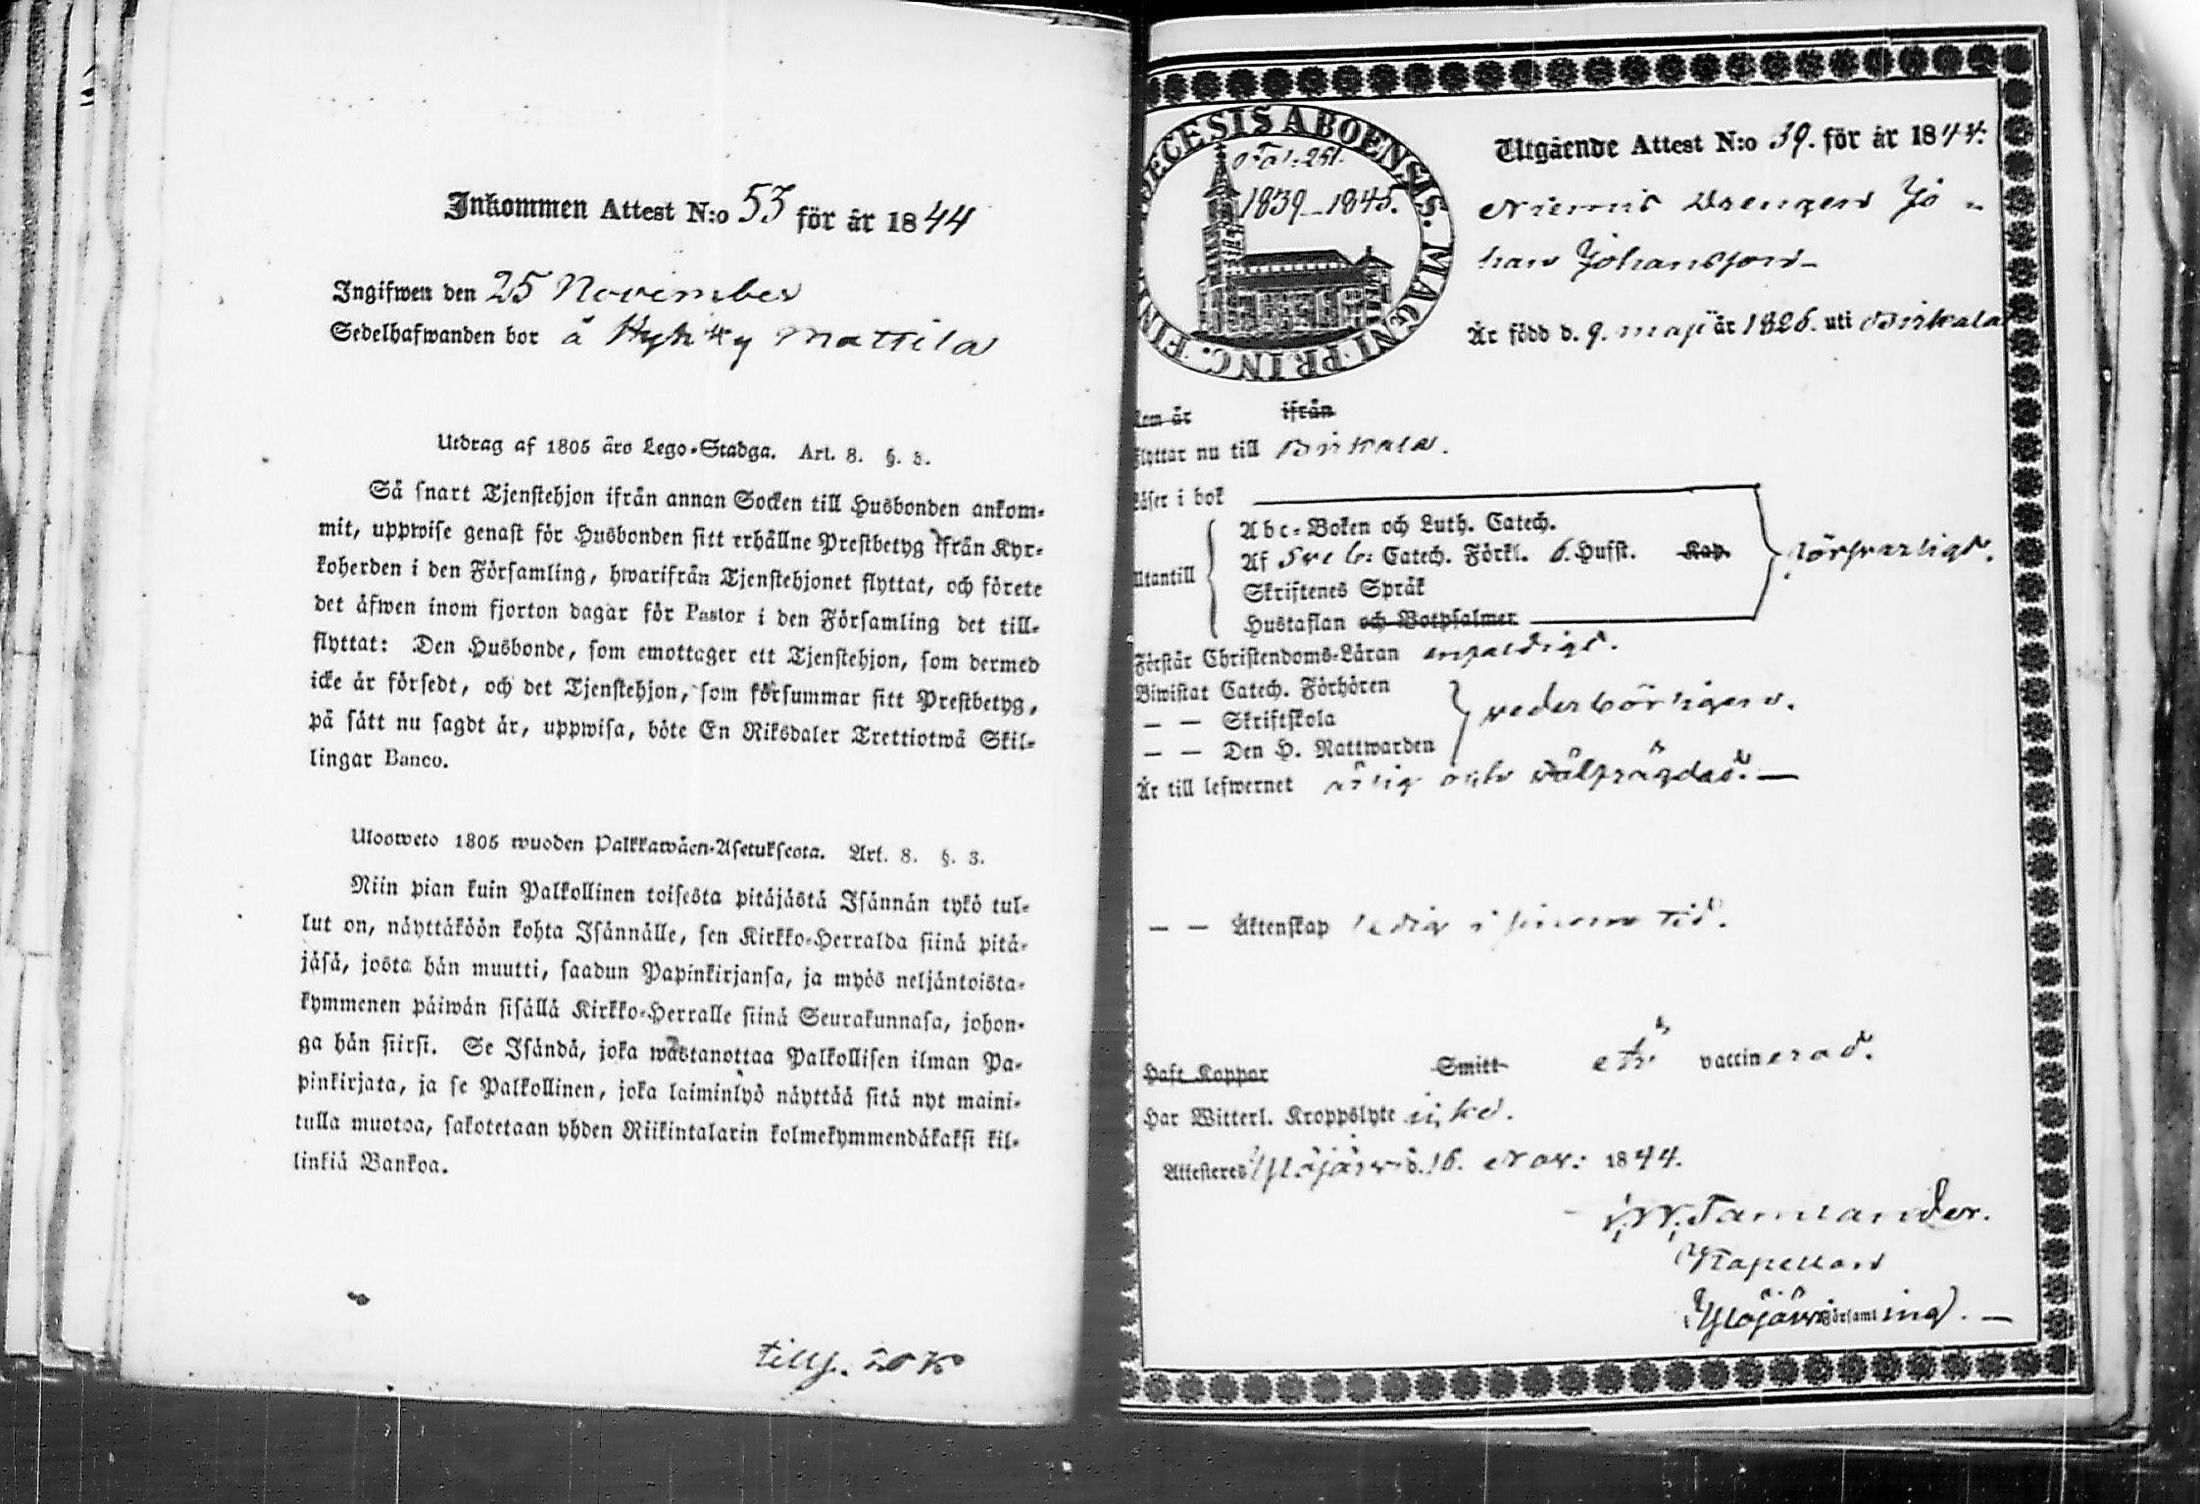 Inkommen Attest N:o 53 för år 1844
Ingifwen den 25 November
Sedelhafwanden bor å Hyhky Mattila
Utdrag af 1805 års Lego-Stadga. Art. 8. §. 3.
Så snart Tjenstehjon ifrån annan Socken till Husbonden ankom-
mit, uppwise genast för Husbonden sitt erhållne Prestbetyg ifrån Kyr-
koherden i den Församling, hwarifrån Tjenstehjonet flyttat, och förete
det äfwen inom fjorton dagar för Pastor i den Församling det till-
flyttat: Den Husbonde, som emottager ett Tjenstehjon, som dermed
icke är försedt, och det Tjenstehjon, som försummar sitt Prestbetyg,
på sätt nu sagdt är, uppwisa, böte En Riksdaler Trettiotwå Skil-
lingar Banco.
Uloosweto 1805 wuoden Palkkawäen-Asetuksesta. Art. 8. §. 3.
Niin pian kuin Palkollinen toisesta pitäjästä Isännän tykö tul-
lut on, näyttäköön kohta Isännälle, sen Kirkko-Herralda siinä pitä-
jäsä, josta hän muutti, saadun Papinkirjansa, ja myös neljäntoista-
kymmenen päiwän sisällä Kirkko-Herralle siinä Seurakunnasa, johon-
ga hän siirsi. Se Isändä, joka wastanottaa Palkollisen ilman Pa-
pinkirjata, ja se Palkollinen, joka laiminlyö näyttää sitä nyt maini-
tulla muotoa, sakotetaan yhden Riikintalarin kolmekymmendäkaksi kil-
linkiä Bankoa.
DIOECESIS ABOENSIS. MAGNI PRINC. FINL
1839-1845.
Utgående Attest N:o 39. för år 1844.
Niemis Drengen Jo-
han Johansson
Är född d. 9. maji år 1826. uti Birkala
Kom år ifrån
Flyttar nu till Birkala.
Läser i bok
Abc-Boken och Luth. Catech.
Utantill
Af Sveb: Catech. Förkl. 6. Hufst. Kap.
försvarligt.
Skriftenes Språk
Hustaflan och Botpsalmer
Förstår Christendoms-Läran enfaldigt.
Biwistat Catech. Förhören
— — Skriftskola
vederbörligen.
— — Den H. Nattwarden
Är till lefwernet ärlig och välfrägdad. —
— — Äktenskap ledig i sinom tid.
Haft Koppor Smitt är vaccinerad.
Har Witterl. Kroppslyte icke.
Attesteres Ylöjärvi d. 16. Nov: 1844.
Tamlander.
Kapellan
Ylöjärvi Församling. —